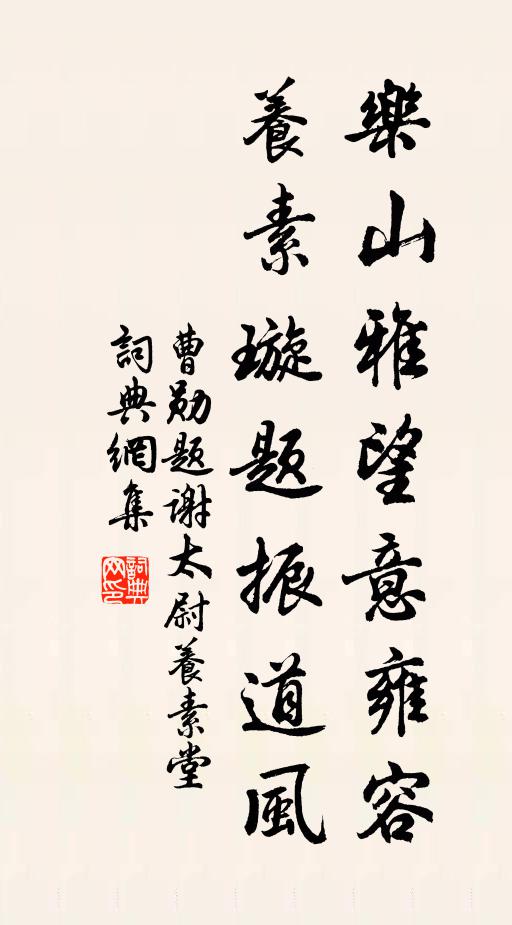 樂山雅望意雍容
養素璇題振道風
曹勛題謝太尉養素堂
詞典網集
詞典网印